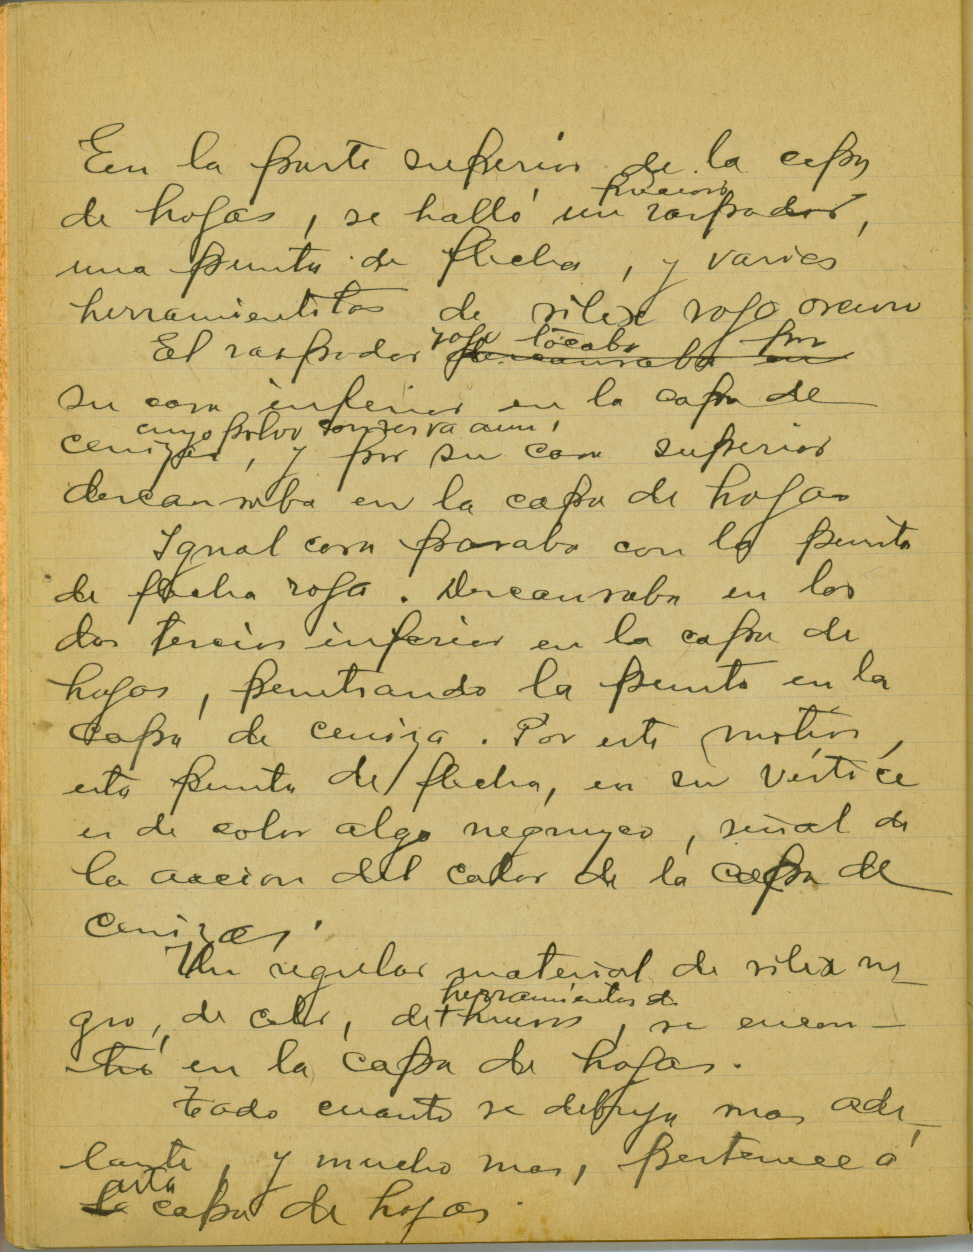 En la parte superior de la capa
precioso
de hojas, se halló un raspador,
una punta de flecha, y varios
herramientitas de silex rojo oscuro
El raspador rojo tocaba por
descansaba en
su cara inferior en la capa de
cuyo polvo conserva aun,
cenizas, y por su cara superior
descansaba en la capa de hojas
Igual cosa pasaba con la punta
de flecha roja. Descansaba en los
dos tercios inferior en la capa de
hojas, penetrando la punta en la
capa de ceniza. Por este motivo,
esta punta de flecha, en su vértice
es de color algo negruzco, señal de
la accion del calor de la capa de
cenizas.
Un regular material de silex ne
herramientas de
gro, de color, de huesos, se encon-
tró en la capa de hojas.
Todo cuanto se dibuja mas ade
lante, y mucho mas, pertenece á
esta
la capa de hojas.